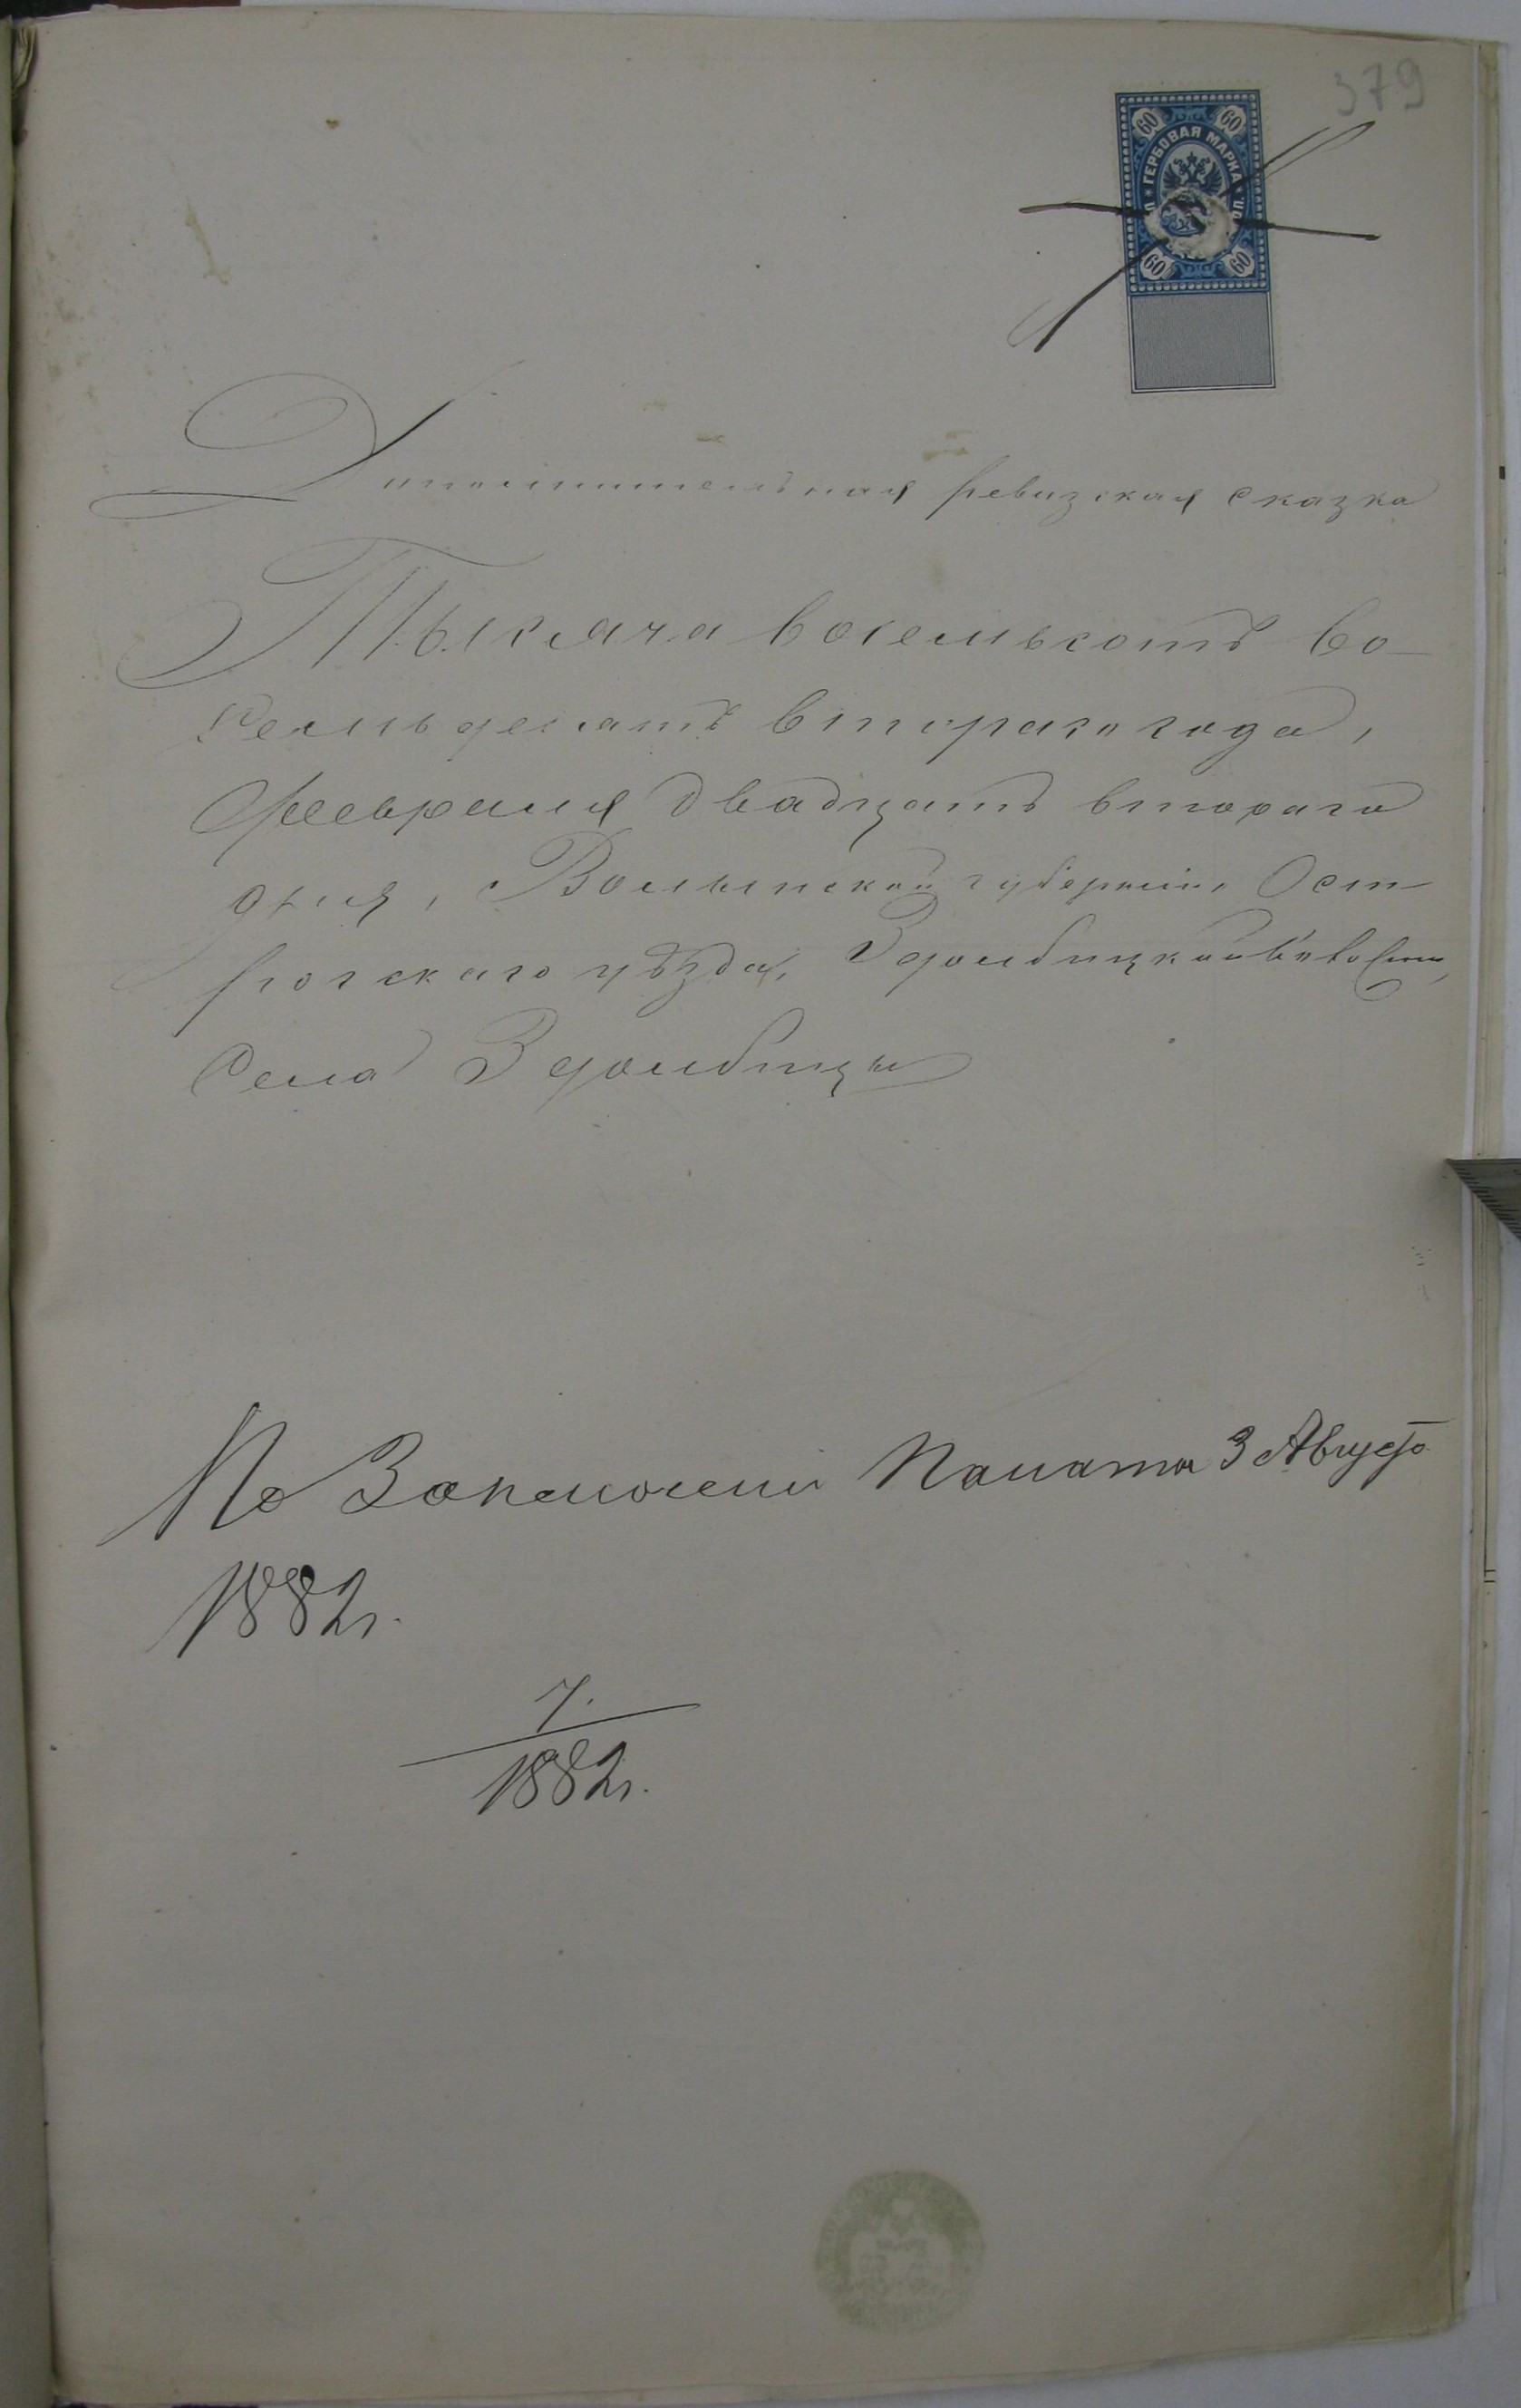 379
60 60
ГЕРБОВАЯ МАРКА
60 60
Дополнительная ревизская сказка
Тысяча восемьсотъ во-
семьдесятъ втораго года,
февраля двадцать втораго
дня, Волынской губерніи, Ост-
рогскаго уѣзда, Здолбицкой волости,
села Здолбицы
По Заключенію Палаты 3 Августа
1882г.
7.
1882г.